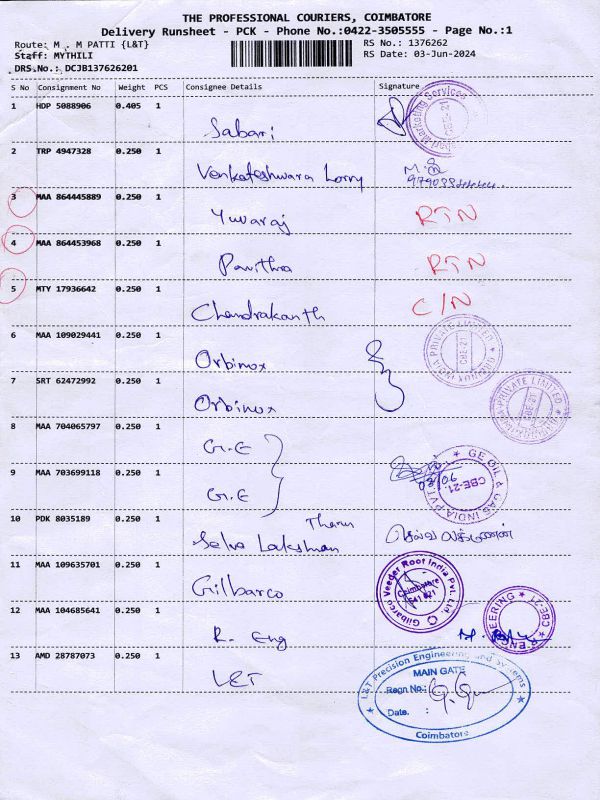 THE PROFESSIONAL COURIERS, COIMBATORE
Delivery Runsheet - PCK - Phone No.:0422-3505555 - Page No.:1
Route: M . M PATTI {L&T} RS No.: 1376262
Staff: MYTHILI RS Date: 03-Jun-2024
DRS.No.: DCJB137626201
S No Consignment No Weight PCS Consignee Details Signature
1 HDP 5088906 0.405 1 Sabari Marketing Services CBE-21
2 TRP 4947328 0.250 1 Venkateshwara Lorry
3 MAA 864445889 0.250 1 Yuvaraj RTN
4 MAA 864453968 0.250 1 Pavithra RTN
5 MTY 17936642 0.250 1 Chandrakanth C/N
6 MAA 109029441 0.250 1 Orbinox PRIVATE LIMITED CBE-21
7 SRT 62472992 0.250 1 Orbinox PRIVATE LIMITED CBE-21
8 MAA 704065797 0.250 1 G.E
9 MAA 703699118 0.250 1 G.E 03/06 GE OIL & GAS INDIA PVT CBE-21
10 PDK 8035189 0.250 1 Selva Lakshman Tharun செல்வ லக்ஷ்மணன்
11 MAA 109635701 0.250 1 Gilbarco Gilbarco Veeder Root India Pvt. Ltd. Coimbatore 641 021
12 MAA 104685641 0.250 1 R. Eng ENGINEERING CBE-21
13 AMD 28787073 0.250 1 L&T L&T Precision Engineering and Systems
MAIN GATE
Regn No.:
Date. :
Coimbatore